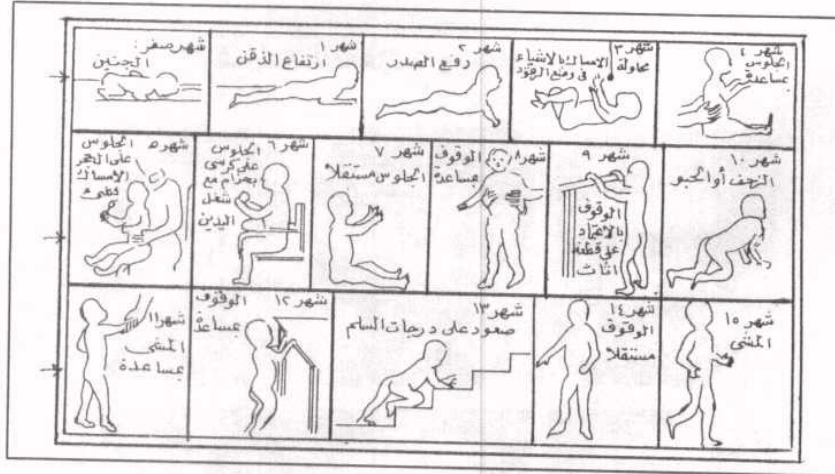 شهر صفر:
الجنين
شهر ١
ارتفاع الذقن
شهر ٢
رفع الصدر
شهر ٣
محاولة
الامساك بالاشياء
فى وضع الرقود
شهر ٤
الجلوس
بمساعدة
شهر ٥ الجلوس
على الحجر
الامساك
شهر ٦ الجلوس
على كرسى
بحزام مع
شغل
اليدين
شهر ٧
الجلوس مستقلا
شهر ٨ الوقوف
بمساعدة
شهر ٩
الوقوف
بالاعتماد
على قطعة
اثاث
شهر ١٠
الزحف أو الحبو
شهر ١١
المشى
بمساعدة
شهر ١٢ الوقوف
بمساعدة
شهر ١٣
صعود على درجات السلم
شهر ١٤
الوقوف
مستقلا
شهر ١٥
المشى